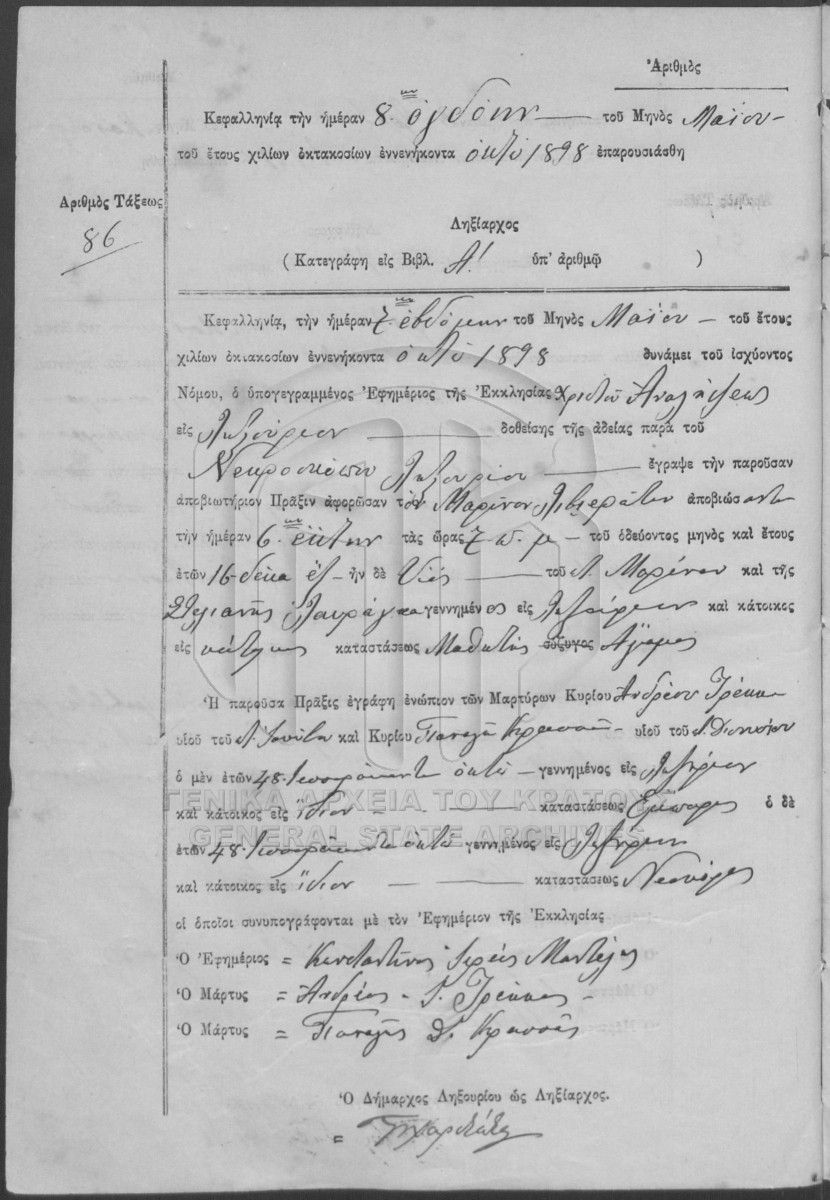 Ἀριθμὸς
Κεφαλληνίᾳ τὴν ἡμέραν 8ην ὀγδόην τοῦ Μηνὸς Μαΐου
τοῦ ἔτους χιλίων ὀκτακοσίων ἐννενήκοντα ὀκτὼ 1898 ἐπαρουσιάσθη
Ἀριθμὸς Τάξεως
86
Ληξίαρχος
( Κατεγράφη εἰς Βιβλ. Α! ὑπ' ἀριθμῷ )
Κεφαλληνίᾳ, τὴν ἡμέραν 7ην ἑβδόμην τοῦ Μηνὸς Μαΐου τοῦ ἔτους
χιλίων ὀκτακοσίων ἐννενήκοντα ὀκτὼ 1898 δυνάμει τοῦ ἰσχύοντος
Νόμου, ὁ ὑπογεγραμμένος Ἐφημέριος τῆς Ἐκκλησίας Χριστοῦ Ἀναλήψεως
εἰς Ληξούριον δοθείσης τῆς ἀδείας παρὰ τοῦ
Νεκροσκόπου Ληξουρίου ἔγραψε τὴν παροῦσαν
ἀποβιωτήριον Πρᾶξιν ἀφορῶσαν τὸν Μαρῖνον Λιβιεράτον ἀποβιώσαντα
τὴν ἡμέραν 6ην ἕκτην τὰς ὥρας 7 π. μ. τοῦ ὁδεύοντος μηνὸς καὶ ἔτους
ἐτῶν 16 δέκα ἕξ ἦν δὲ Υἱὸς τοῦ Μαρίνου καὶ τῆς
Στυλιανῆς γεννημένος εἰς Ληξούριον καὶ κάτοικος
εἰς καταστάσεως Μαθητὴς σύζυγος Ἄγαμος
Ἡ παροῦσα Πρᾶξις ἐγράφη ἐνώπιον τῶν Μαρτύρων Κυρίου Ἀνδρέου Τρέκκα
υἱοῦ τοῦ καὶ Κυρίου Παναγῆ Κρασσᾶ υἱοῦ τοῦ Διονυσίου
ὁ μὲν ἐτῶν 48 τεσσαράκοντα ὀκτὼ γεννημένος εἰς Ληξούριον
καὶ κάτοικος εἰς ἴδιον καταστάσεως Ἔμπορος ὁ δὲ
ἐτῶν 48 τεσσαράκοντα ὀκτὼ γεννημένος εἰς Ληξούριον
καὶ κάτοικος εἰς ἴδιον καταστάσεως
οἱ ὁποῖοι συνυπογράφονται μὲ τὸν Ἐφημέριον τῆς Ἐκκλησίας
Ὁ Ἐφημέριος = Κωνσταντῖνος Ἱερεὺς
Ὁ Μάρτυς = Ἀνδρέας Τρέκκας
Ὁ Μάρτυς = Παναγῆς Δ. Κρασσᾶς
Ὁ Δήμαρχος Ληξουρίου ὡς Ληξίαρχος.
ΓΕΝΙΚΑ ΑΡΧΕΙΑ ΤΟΥ ΚΡΑΤΟΥΣ
GENERAL STATE ARCHIVES